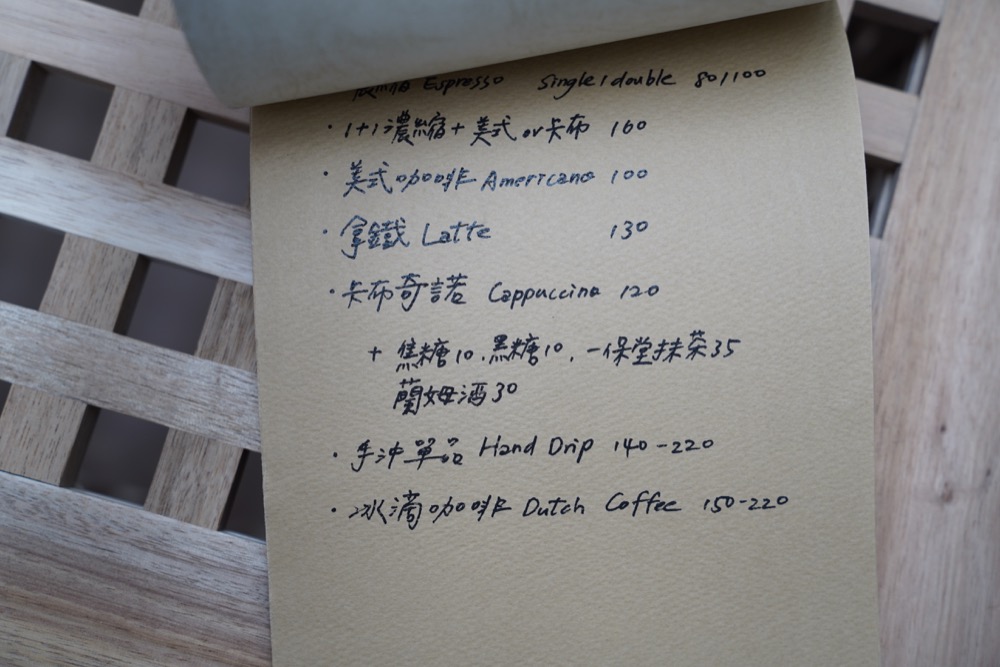 濃縮 Espresso single/double 80/100
· 1+1濃縮+美式or卡布 160
· 美式咖啡 Americano 100
· 拿鐵 Latte 130
· 卡布奇諾 Cappuccino 120
+ 焦糖10、黑糖10、一保堂抹茶35
蘭姆酒30
· 手沖單品 Hand Drip 140-220
· 冰滴咖啡 Dutch Coffee 150-220